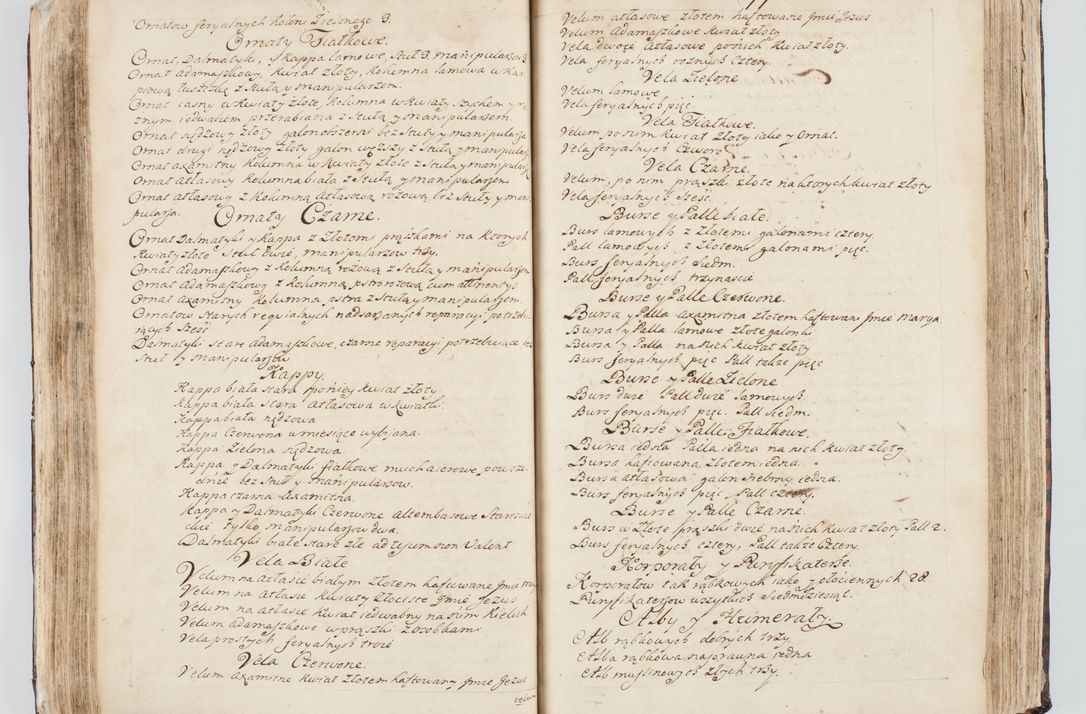 Ornatow feryalnych koloru Zielonego 3.
Ornaty Fiałkowe.
Ornat, Dalmatyki, y Kappa lamowe, Stuł 3. manipularzow 3
Ornat adamaszkowy, kwiat złoty, kolumna lamowa w kar=
piową łuszczkę z stułą y manipularzem.
Ornat iasny w kwiaty złote, kolumna w kwiaty szychem y r=
znym iedwabiem przerabiana z Stułą y manipularzem.
Ornat rądzowy złoty galonem bez Stuły y manipularza
Ornat drugi rądzowy złoty galon węższy z Stułą y manipul
Ornat axamitny kolumna w kwiaty złote z Stułą y manipularz
Ornat atłasowy kolumna biała z Stułą y manipularzem
Ornat atłasowy z kolumną atłasową rożową bez Stuły y mani
pularza. Ornaty Czarne.
Ornat Dalmatyki y Kappa z Złotemi prążkami na ktorych
kwiaty złote Stuł dwie, manipularzow trzy.
Ornat adamaszkowy z kolumną rożową z Stułą y manipularzem
Ornat adamaszkowy z kolumną pstrorożową cum attinentys
Ornat Axamitny kolumna pstra z Stułą y manipularzem.
Ornatow Starych requialnych nadszarzanych reparacyi potrzebu
iących Sześć
Dalmatyki Stare adamaszkowe, czarne reparacyi potrzebuiące bez
Stuł y manipularzow
Kappy.
Kappa biała stara po niey kwiat złoty
Kappa biała Stara Atłasowa w kwiatki
Kappa biała rądzowa
Kappa Czerwona w miesiące wybijana.
Kappa Zielona rądzowa.
Kappa y Dalmatyki fiałkowe muchaierowe, powsze=
dnie bez Stuł y manipularzow.
Kappa czarna Axamitna.
Kappa y Dalmatyki Czerwone altembasowe Staroswie
ckie tylko manipularzow dwa.
Dalmatyki białe stare złe ad usum non valent
Vela Białe
Velum na atłasie białym złotem haftowane Jmie Mar
Velum na atłasie kwiaty złociste Jmie Jezus
Velum na atłasie kwiat iedwabny na nim Kielich
Velum adamaszkowe w prążki z ozobkami
Vela prostych feryalnych troie
Vela Czerwone.
Velum Axamitne kwiat złotem haftowany Jmie Jezus
velum
Velum atłasowe złotem haftowane Jmie Jezus
Velum Adamaszkowe kwiat złoty
Vela dwoie Atłasowe po nich kwiat złoty.
Vela feryalnych rożnych cztery.
Vela Zielone
Velum lamowe
Vela feryalnych pięć
Vela Fiałkowe.
Velum po nim kwiat złoty iako y Ornat.
Vela feryalnych Czworo
Vela Czarne.
Velum, po nim prążki złote na ktorych kwiat złoty
Vela feryalnych Sześć.
Burse y Palle białe.
Burs lamowych z złotemi galonami cztery
Pall lamowych z złotemi galonami pięć.
Burs feryalnych Siedm.
Pall feryalnych trzynaście
Burse y Palle Czerwone.
Bursa y Palla axamitna złotem haftowan Jmie Marya
Bursa y Palla lamowe złote galonki
Bursa y Palla na nich kwiat złoty
Burs feryalnych pięć Pall także pięć
Burse y Palle Zielone
Burs dwie Pall dwie lamowych
Burs feryalnych pięć. Pall Siedm.
Burse y Palle Fiałkowe.
Bursa iedna Palla iedna na nich kwiat złoty.
Bursa haftowana złotem iedna.
Bursa atłasowa galon srebrny iedna.
Burs feryalnych pięć Pall cztery.
Burse y Palle Czarne.
Burs w złote prążki dwie na nich kwiat złoty Pall 2.
Burs feryalnych cztery, Pall także Cztery.
Korporały y Puryfikaterze.
Korporałow tak rąbkowych iako y płociennych 28.
Puryfikaterzow wszytkich Siedmdziesiąt.
Alby y Humerały.
Alb rąbkowych dobrych trzy.
Alba rąbkowa naprawna iedna
Alb muslinowych złych trzy.